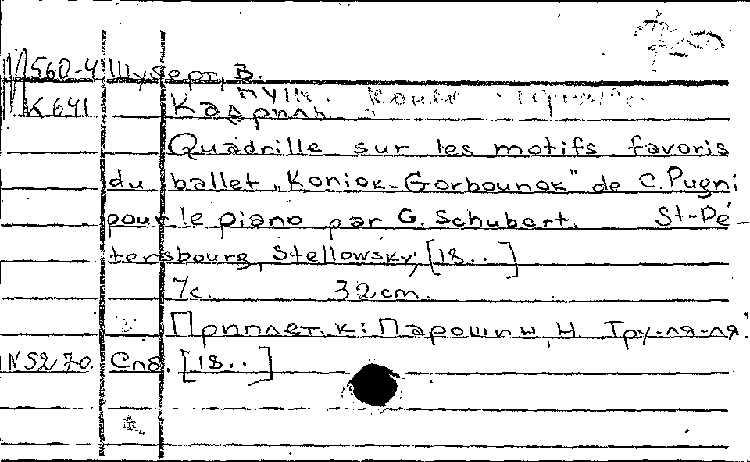 560-4 Шуберт, В.
К 641 Кадриль
Quadrille sur les motifs favoris
du ballet „Koniok-Gorbounok" de C. Pugni
pour le piano par G. Schubert. St-Pé
tersbourg, Stellowsky, [18..]
7с. 32 cm.
Приплет. к: Парошин, Н. Тру-ля-ля.
N5270. Спб. [18..]